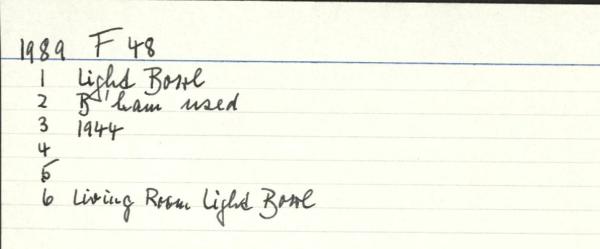 1989 F 48
1 Light Bowl
2 B'ham used
3 1944
4
5
6 Living Room Light Bowl